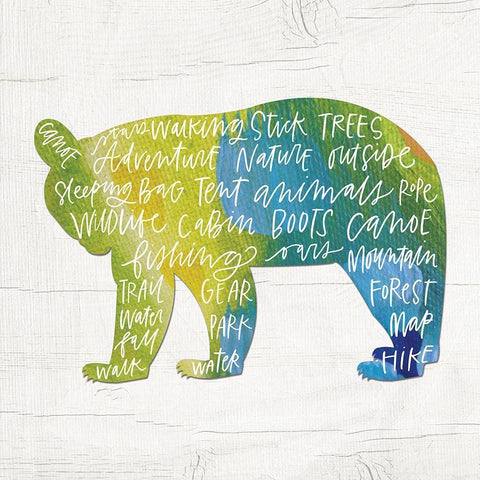 canoe
oars Walking Stick TREES
Adventure NATURE outside
Sleeping BAG Tent animals ROPE
WILDLIFE CABIN BOOTS canoe
fishing oars Mountain
TRAIL GEAR FOREST
Water PARK Map
fall
WALK WATER HIKE